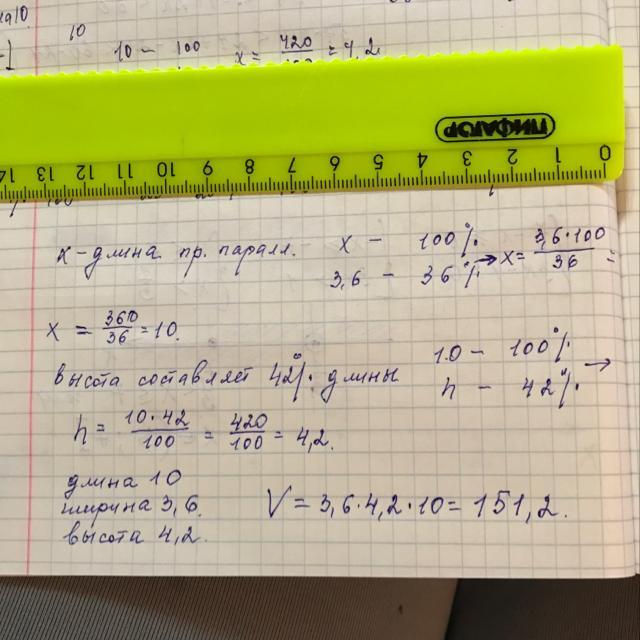 10
10 - 100 x = 420 = 4,2
ПИФАГОР
14 13 12 11 10 9 8 7 6 5 4 3 2 1 0
x - длина пр. паралл. x - 100% → x = 3,6·100/36 =
3,6 - 36%
x = 360/36 = 10.
высота составляет 42% длины 10 - 100% →
h - 42%
h = 10·42/100 = 420/100 = 4,2.
длина 10
ширина 3,6.
высота 4,2.
V = 3,6·4,2·10 = 151,2.